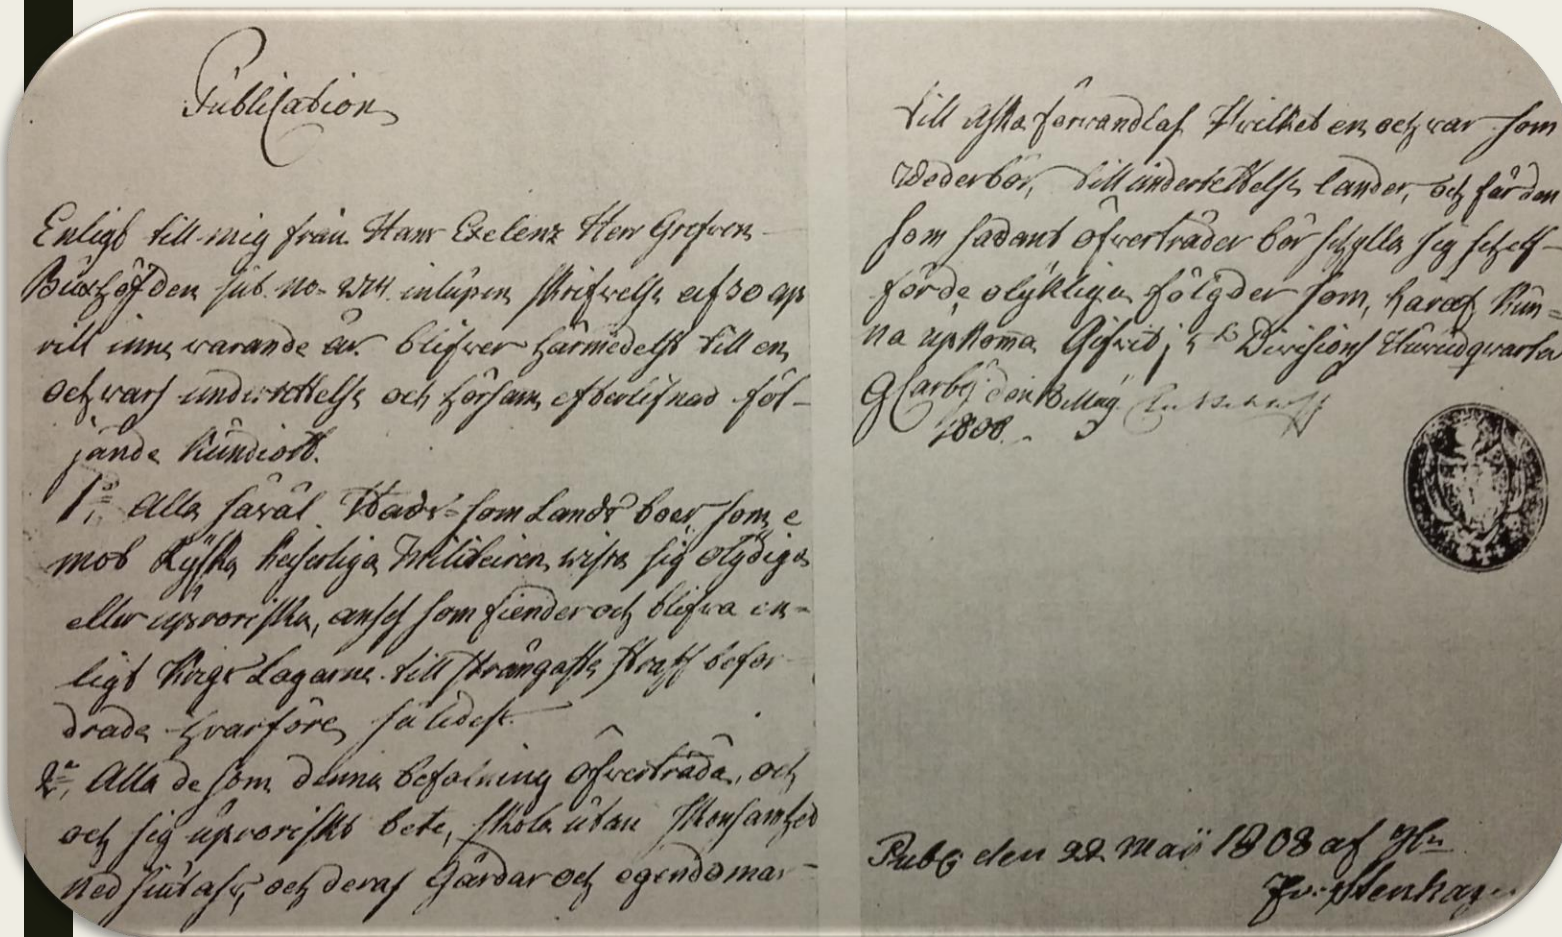 Publication
Enligt till mig från Hans Exelenz Herr Grefven
Buxhöfden sub no= 274 inlupen skrifvelse af 30 ap
rill inne warande år blifwer härmedelst till en
och wars underrettelse och hörsam efterlefnad föl-
jande kundiort.
1o Alla såväl Stads= som Lands boer, som e
mot Ryska keiserliga Militeiren wisa sig olydiga
eller uproriska, anses som fiender och blifva en-
ligt Krigs Lagarne till strängaste straff befor
drade hvarföre således.
2o Alla de som denna befalning öfwerträda, och
och sig uproriskt bete, skola utan skonsamhet
ned hiutas, och deras Gårdar och egendomar-
till Aska förwandlas Hwilket en och war som
Wederbör, till underrettelse lender, och får den
som sådant öfwerträder bör schylla sig schelf-
för de olykliga fölgder som, häraf kun=
na upkomma Gifvit i Divisions Huvudqvarter
G:Carby den Maij
1808.
Pub: den 22 Maii 1808 af